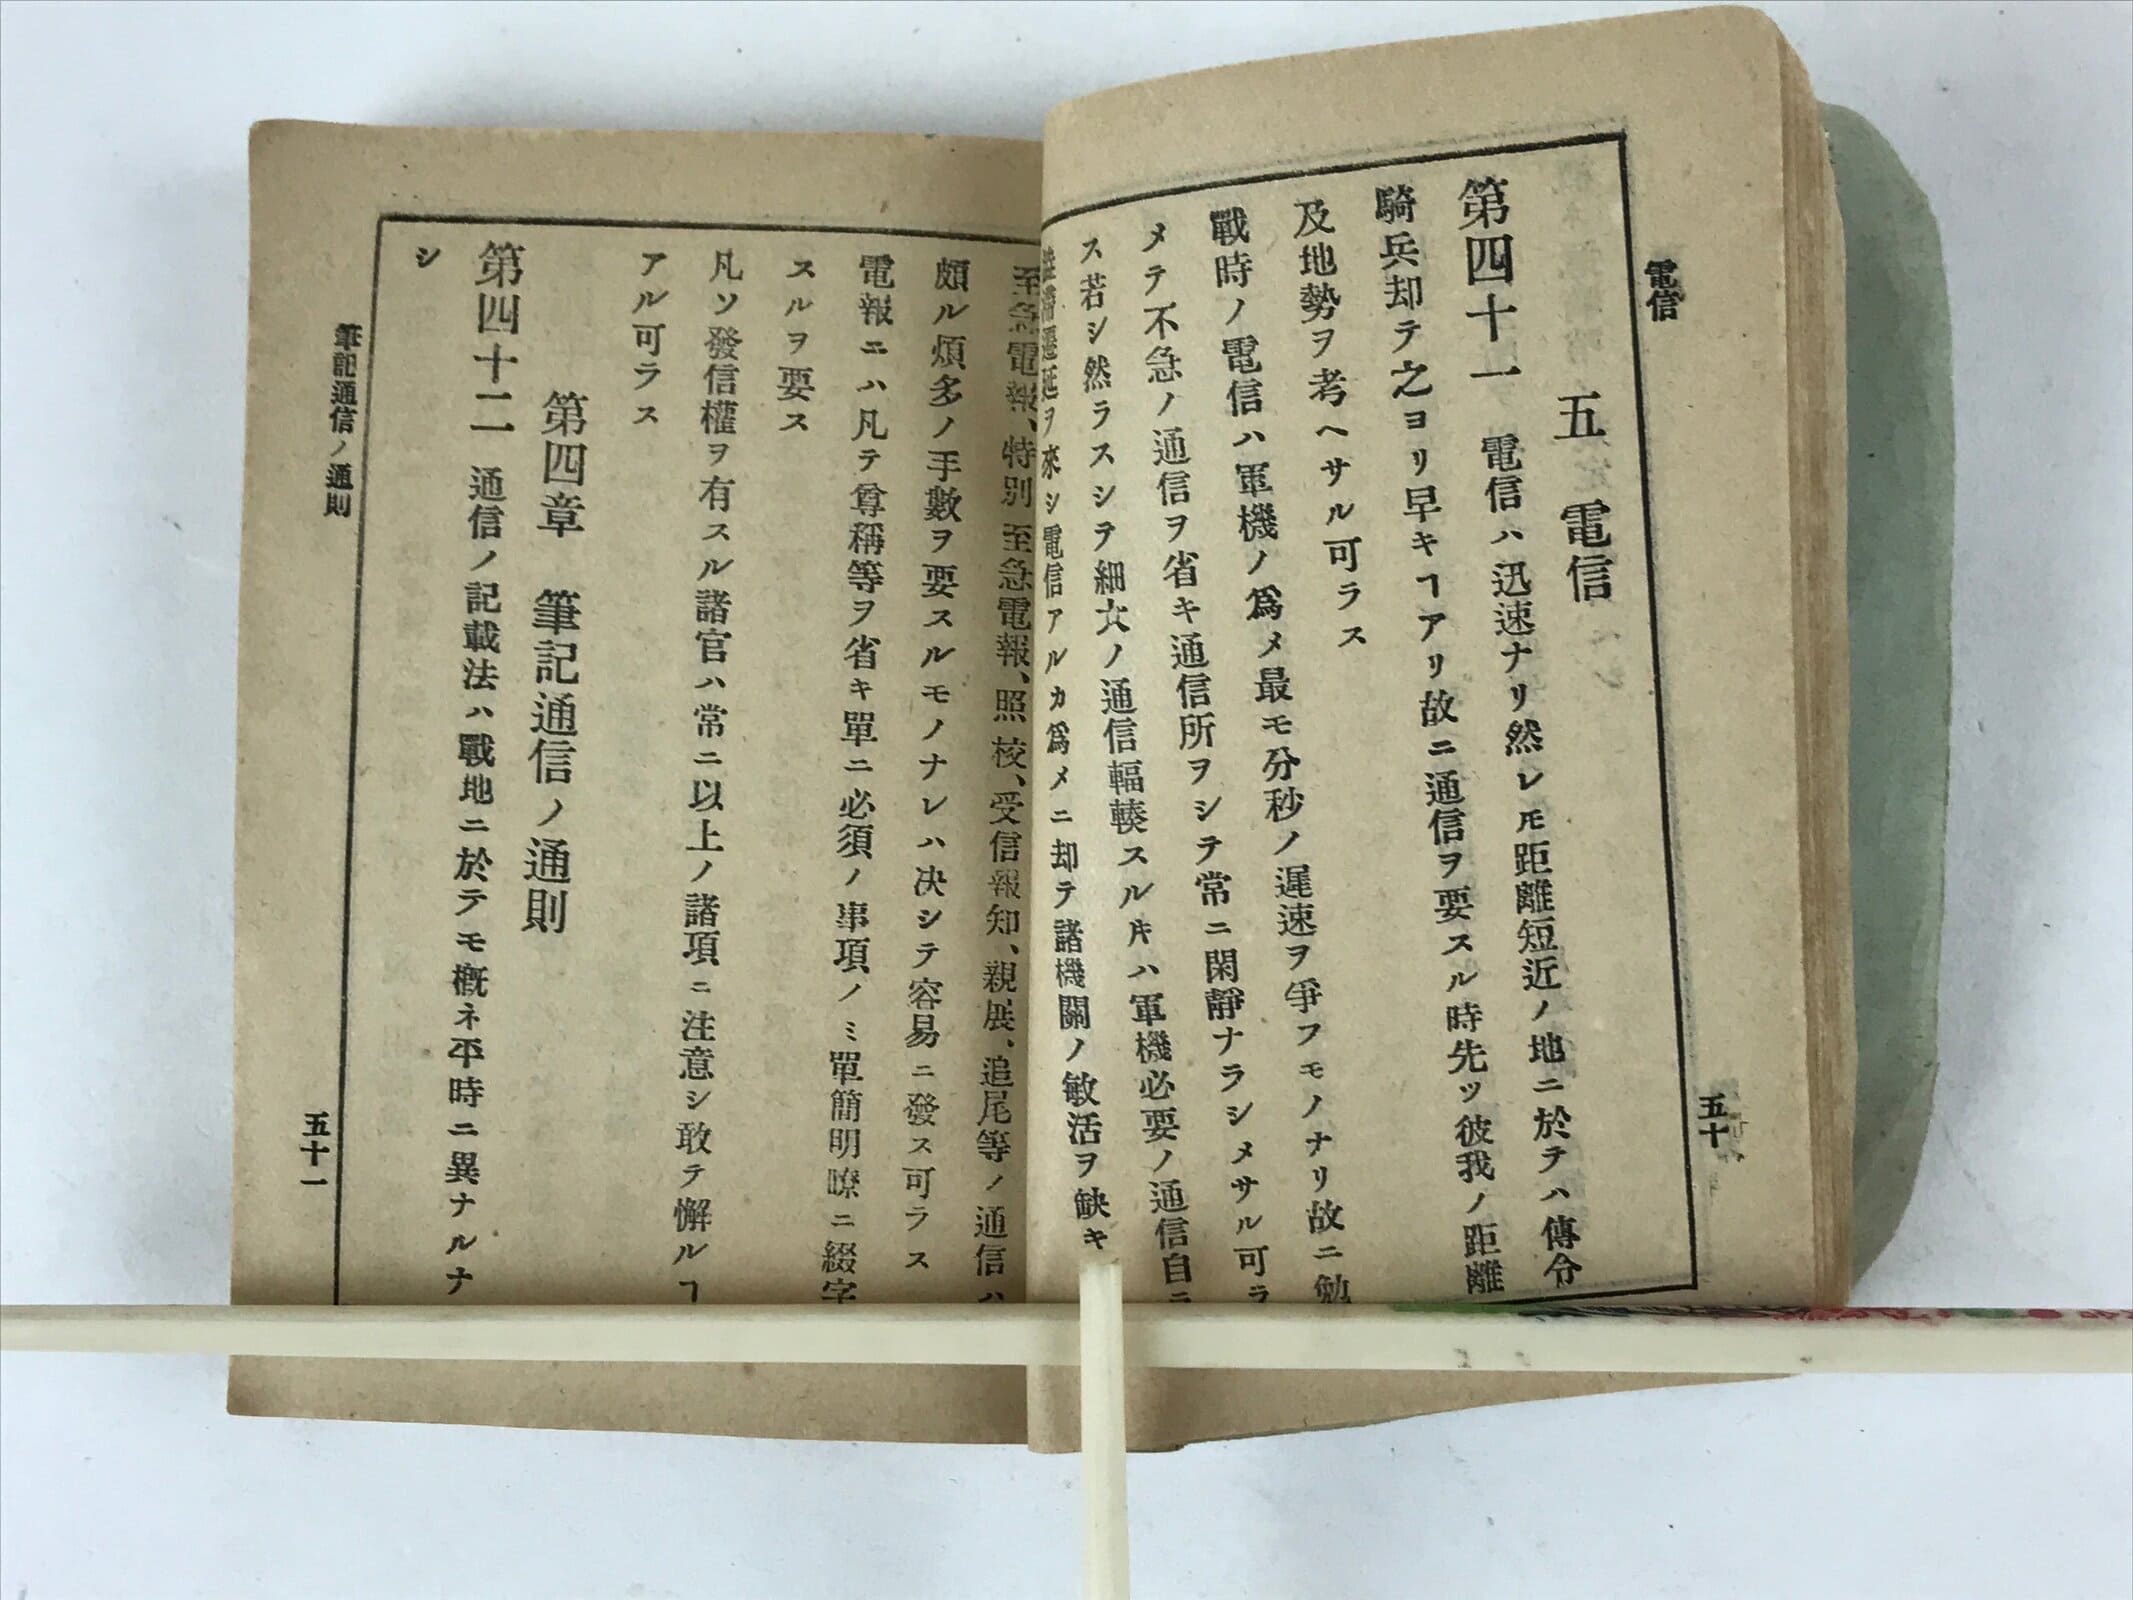 電信
五十
五　電信
第四十一　電信ハ迅速ナリ然レ𪜈距離短近ノ地ニ於テハ傳令
騎兵却テ之ヨリ早キヿアリ故ニ通信ヲ要スル時先ツ彼我ノ距離
及地勢ヲ考ヘサル可ラス
戰時ノ電信ハ軍機ノ爲メ最モ分秒ノ遲速ヲ爭フモノナリ故ニ勉
メテ不急ノ通信ヲ省キ通信所ヲシテ常ニ閑靜ナラシメサル可ラ
ス若シ然ラスシテ細大ノ通信輻輳スル𪜈ハ軍機必要ノ通信自ニ
遷延ヲ來シ電信アルカ爲メニ却テ諸機關ノ敏活ヲ缺キ
至急電報、特別至急電報、照校、受信報知、親展、追尾等ノ通信ハ
頗ル煩多ノ手數ヲ要スルモノナレハ決シテ容易ニ發ス可ラス
電報ニハ凡テ尊稱等ヲ省キ單ニ必須ノ事項ノミ單簡明瞭ニ綴字
スルヲ要ス
凡ソ發信權ヲ有スル諸官ハ常ニ以上ノ諸項ニ注意シ敢テ懈ルヿ
アル可ラス
第四章　筆記通信ノ通則
第四十二　通信ノ記載法ハ戰地ニ於テモ概ネ平時ニ異ナルナ
シ
筆記通信ノ通則
五十一